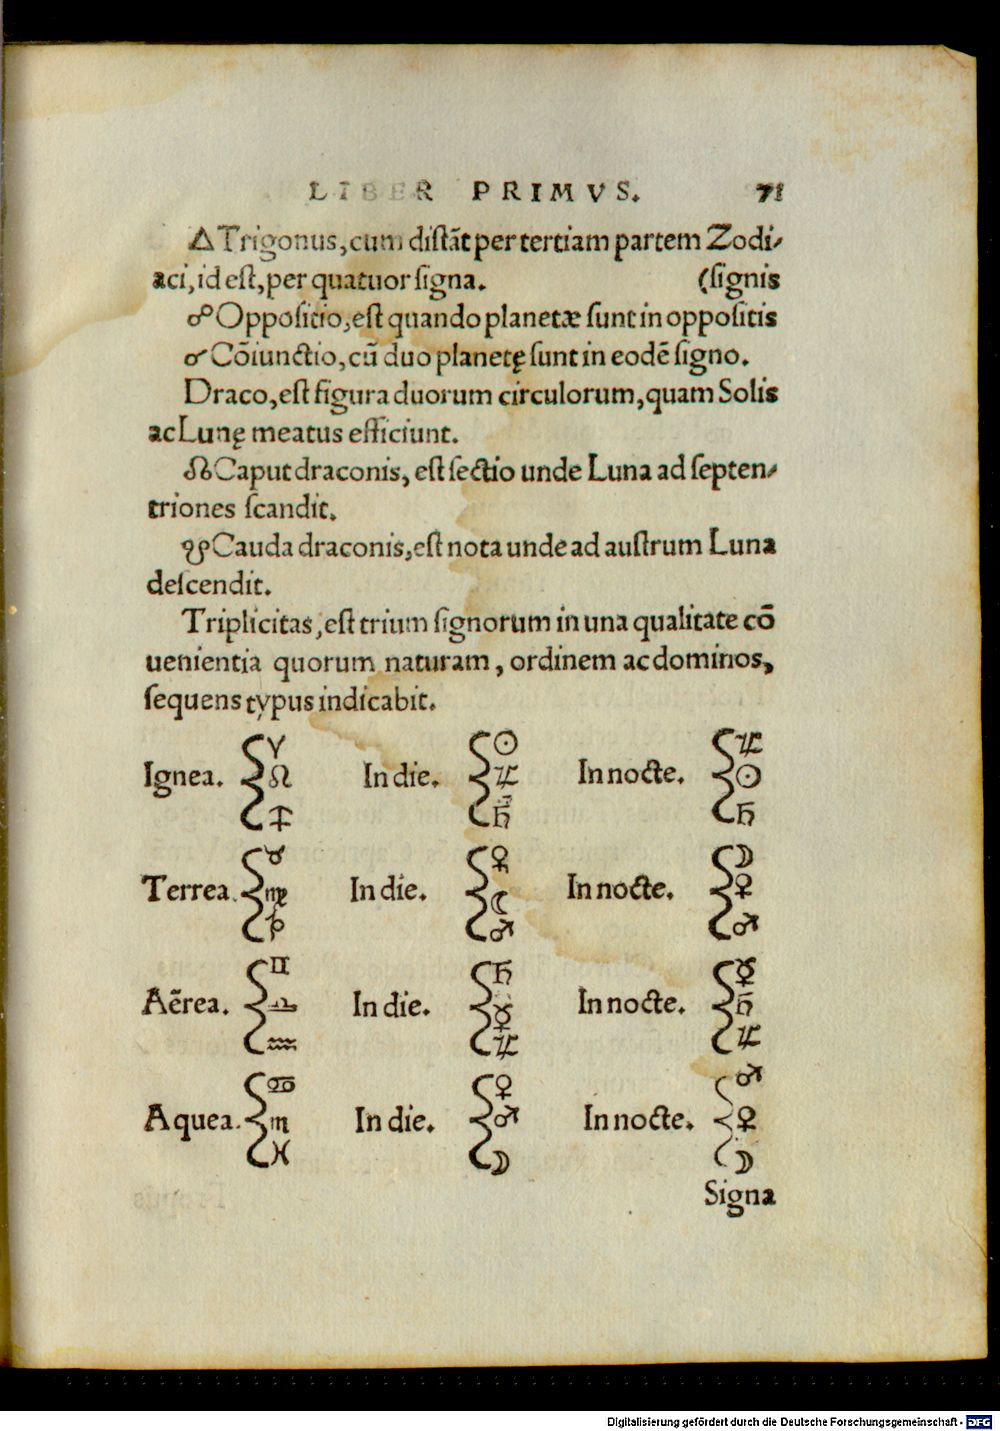 LIBER PRIMVS. 71
△Trigonus, cum distāt per tertiam partem Zodi-
aci, id est, per quatuor signa. (signis
☍Oppositio, est quando planetæ sunt in oppositis
☌Cōiunctio, cū duo planetę sunt in eodē signo.
Draco, est figura duorum circulorum, quam Solis
ac Lunę meatus efficiunt.
☊Caput draconis, est sectio unde Luna ad septen-
triones scandit.
☋Cauda draconis, est nota unde ad austrum Luna
descendit.
Triplicitas, est trium signorum in una qualitate cō
uenientia quorum naturam, ordinem ac dominos,
sequens typus indicabit.
Ignea. ♈ ♌ ♐ In die. ☉ ♃ ♄ In nocte. ♃ ☉ ♄
Terrea. ♉ ♍ ♑ In die. ♀ ☾ ♂ In nocte. ☽ ♀ ♂
Aërea. ♊ ♎ ♒ In die. ♄ ☿ ♃ In nocte. ☿ ♄ ♃
Aquea. ♋ ♏ ♓ In die. ♀ ♂ ☽ In nocte. ♂ ♀ ☽
Signa
Digitalisierung gefördert durch die Deutsche Forschungsgemeinschaft - DFG